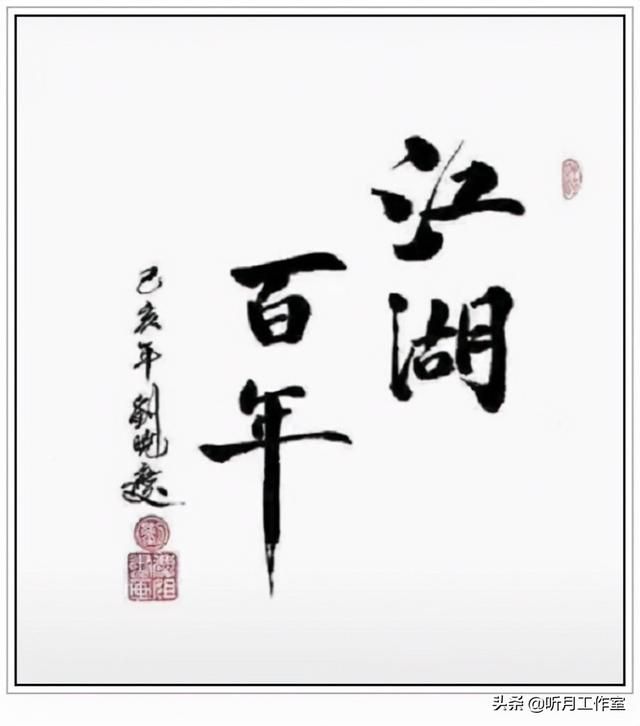 江湖
百年
己亥年劉曉慶
头条 @听月工作室